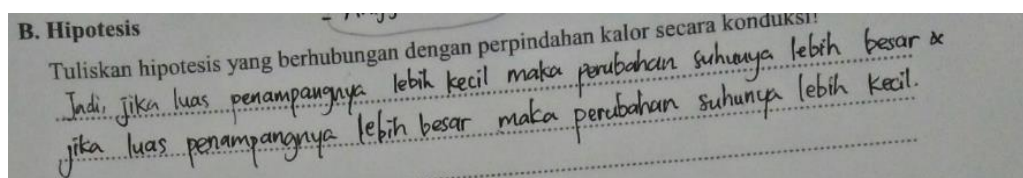 B. Hipotesis
Tuliskan hipotesis yang berhubungan dengan perpindahan kalor secara konduksi!
Jadi, jika luas penampangnya lebih kecil maka perubahan suhunya lebih besar &
jika luas penampangnya lebih besar maka perubahan suhunya lebih kecil.